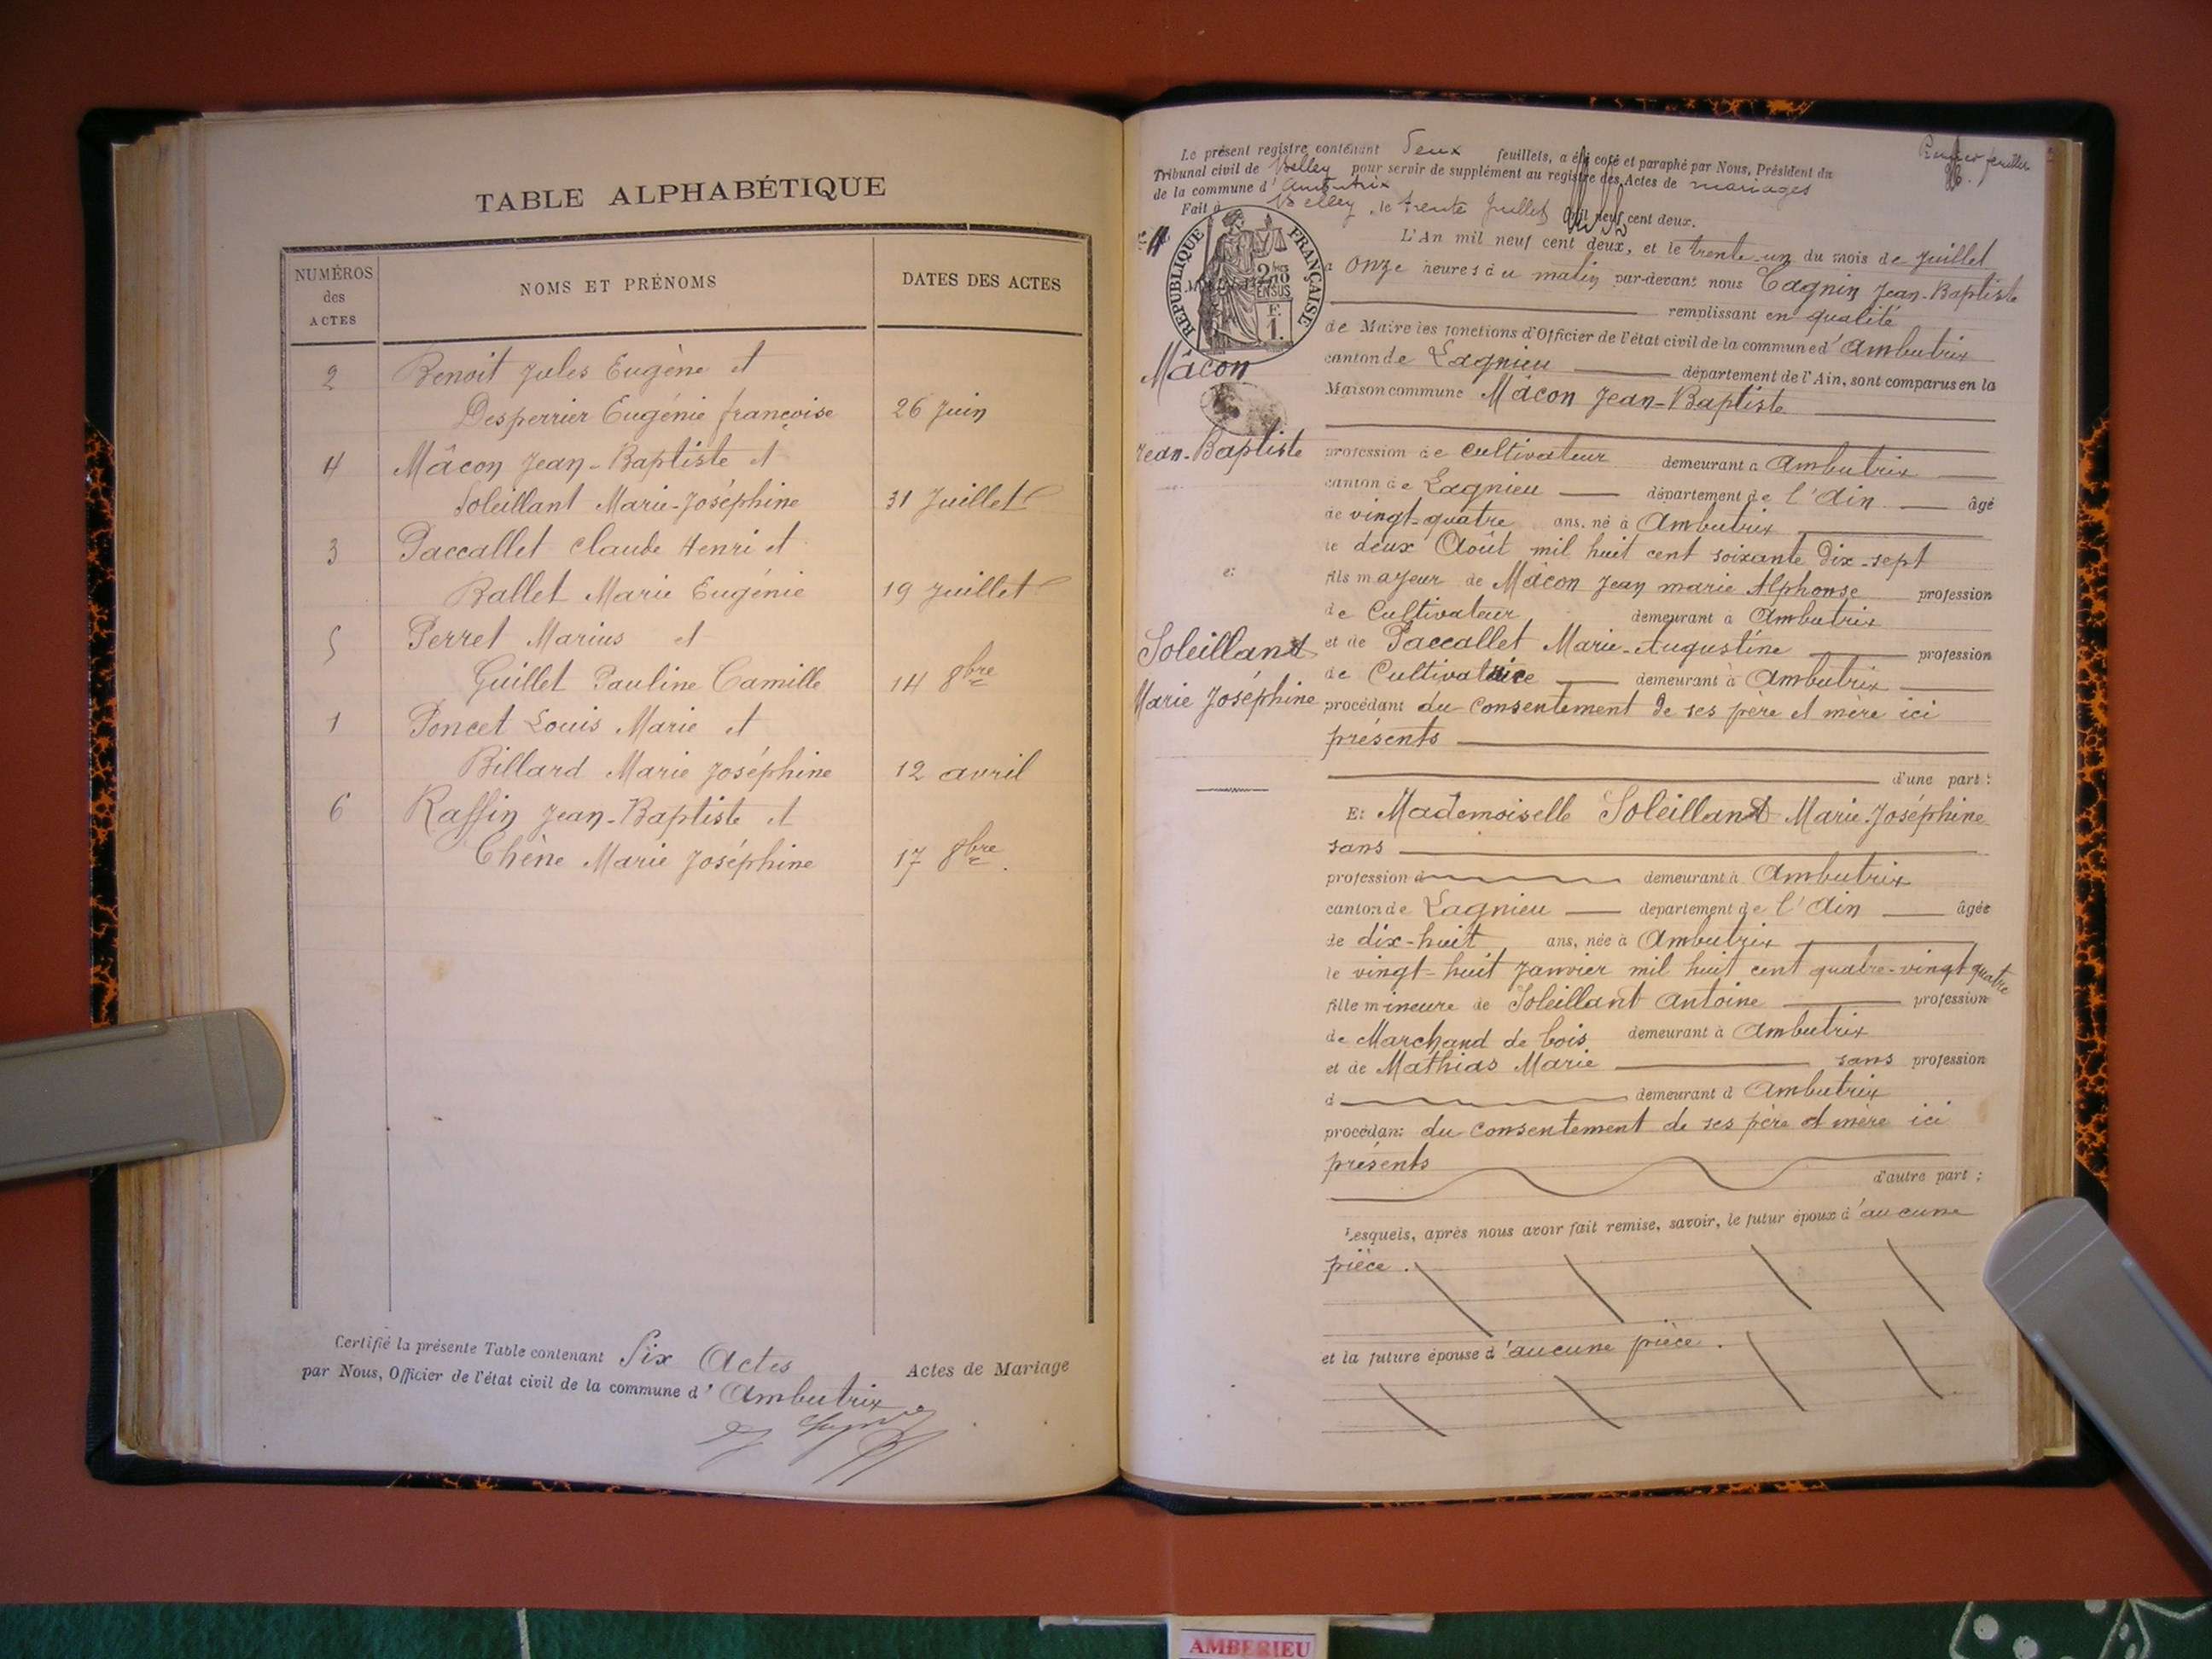 TABLE ALPHABÉTIQUE
NUMÉROS
des
ACTES
NOMS ET PRÉNOMS
DATES DES ACTES
2 Benoit Jules Eugène et
Desperrier Eugénie françoise 26 Juin
4 Mâcon Jean-Baptiste et
Soleillant Marie-Joséphine 31 Juillet
3 Paccallet Claude Henri et
Ballet Marie Eugénie 19 Juillet
5 Perret Marius et
Guillet Pauline Camille 14 8bre
1 Poncet Louis Marie et
Billard Marie Joséphine 12 avril
6 Raffin Jean-Baptiste et
Chêne Marie Joséphine 17 8bre.
Certifié la présente Table contenant Six Actes Actes de Mariage
par Nous, Officier de l'état civil de la commune d' Ambutrix
Premier feuillet
Le présent registre contenant Deux feuillets, a été coté et paraphé par Nous, Président du
Tribunal civil de Belley pour servir de supplément au registre des Actes de mariages
de la commune d' Ambutrix
Fait à Belley, le trente Juillet mil neuf cent deux.
RÉPUBLIQUE FRANÇAISE
L'An mil neuf cent deux, et le trente-un du mois de Juillet
à onze heures du matin par-devant nous Cagnin Jean-Baptiste
remplissant en qualité
de Maire les fonctions d'Officier de l'état civil de la commune d' Ambutrix
canton de Lagnieu département de l'Ain, sont comparus en la
Maison commune Mâcon Jean-Baptiste
Mâcon
Jean-Baptiste
profession de Cultivateur demeurant à Ambutrix
canton de Lagnieu département de l'Ain âgé
de vingt-quatre ans, né à Ambutrix
le deux Août mil huit cent soixante dix-sept
et
fils mayeur de Mâcon Jean marie Alphonse profession
de Cultivateur demeurant à Ambutrix
Soleillant
et de Paccallet Marie-Augustine profession
de Cultivatrice demeurant à Ambutrix
Marie Joséphine
procédant du consentement de ses père et mère ici
présents
d'une part;
Et Mademoiselle Soleillant Marie-Joséphine
sans
profession d demeurant à Ambutrix
canton de Lagnieu département de l'Ain âgée
de dix-huit ans, née à Ambutrix
le vingt-huit Janvier mil huit cent quatre-vingt quatre
fille mineure de Soleillant Antoine profession
de Marchand de bois demeurant à Ambutrix
et de Mathias Marie sans profession
d demeurant à Ambutrix
procédant du consentement de ses père et mère ici
présents
d'autre part;
Lesquels, après nous avoir fait remise, savoir, le futur époux d'aucune
pièce.
et la future épouse d'aucune pièce.
AMBERIEU